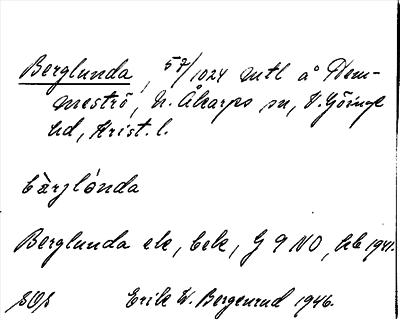 Berglunda, 57/1024 mtl å Hem-
meströ, N. Åkarps sn, V. Göinge
hd, Krist. l.
bàrglónda
Berglunda ek, bek, G 9 NO, hb 1941.
Erik W. Bergenrud 1946.